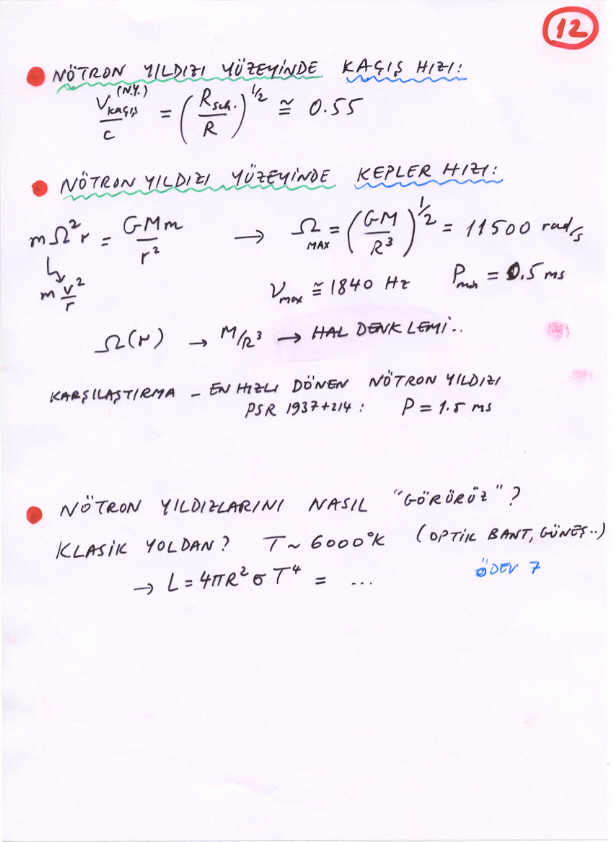 12
NÖTRON YILDIZI YÜZEYİNDE KAÇIŞ HIZI:
V_kaçış^(N.Y.)/c = (R_sch./R)^1/2 ≅ 0.55
NÖTRON YILDIZI YÜZEYİNDE KEPLER HIZI:
mΩ²r = GMm/r² → Ω_MAX = (GM/R³)^1/2 = 11500 rad/s
m v²/r
ν_max ≅ 1840 Hz P_min = 0.5 ms
Ω(r) → M/R³ → HAL DENKLEMİ..
KARŞILAŞTIRMA – EN HIZLI DÖNEN NÖTRON YILDIZI
PSR 1937+214 : P = 1.5 ms
NÖTRON YILDIZLARINI NASIL "GÖRÜRÜZ"?
KLASİK YOLDAN? T ~ 6000°K (OPTİK BANT, GÜNEŞ..)
→ L = 4πR²σT⁴ = ... ÖDEV 7